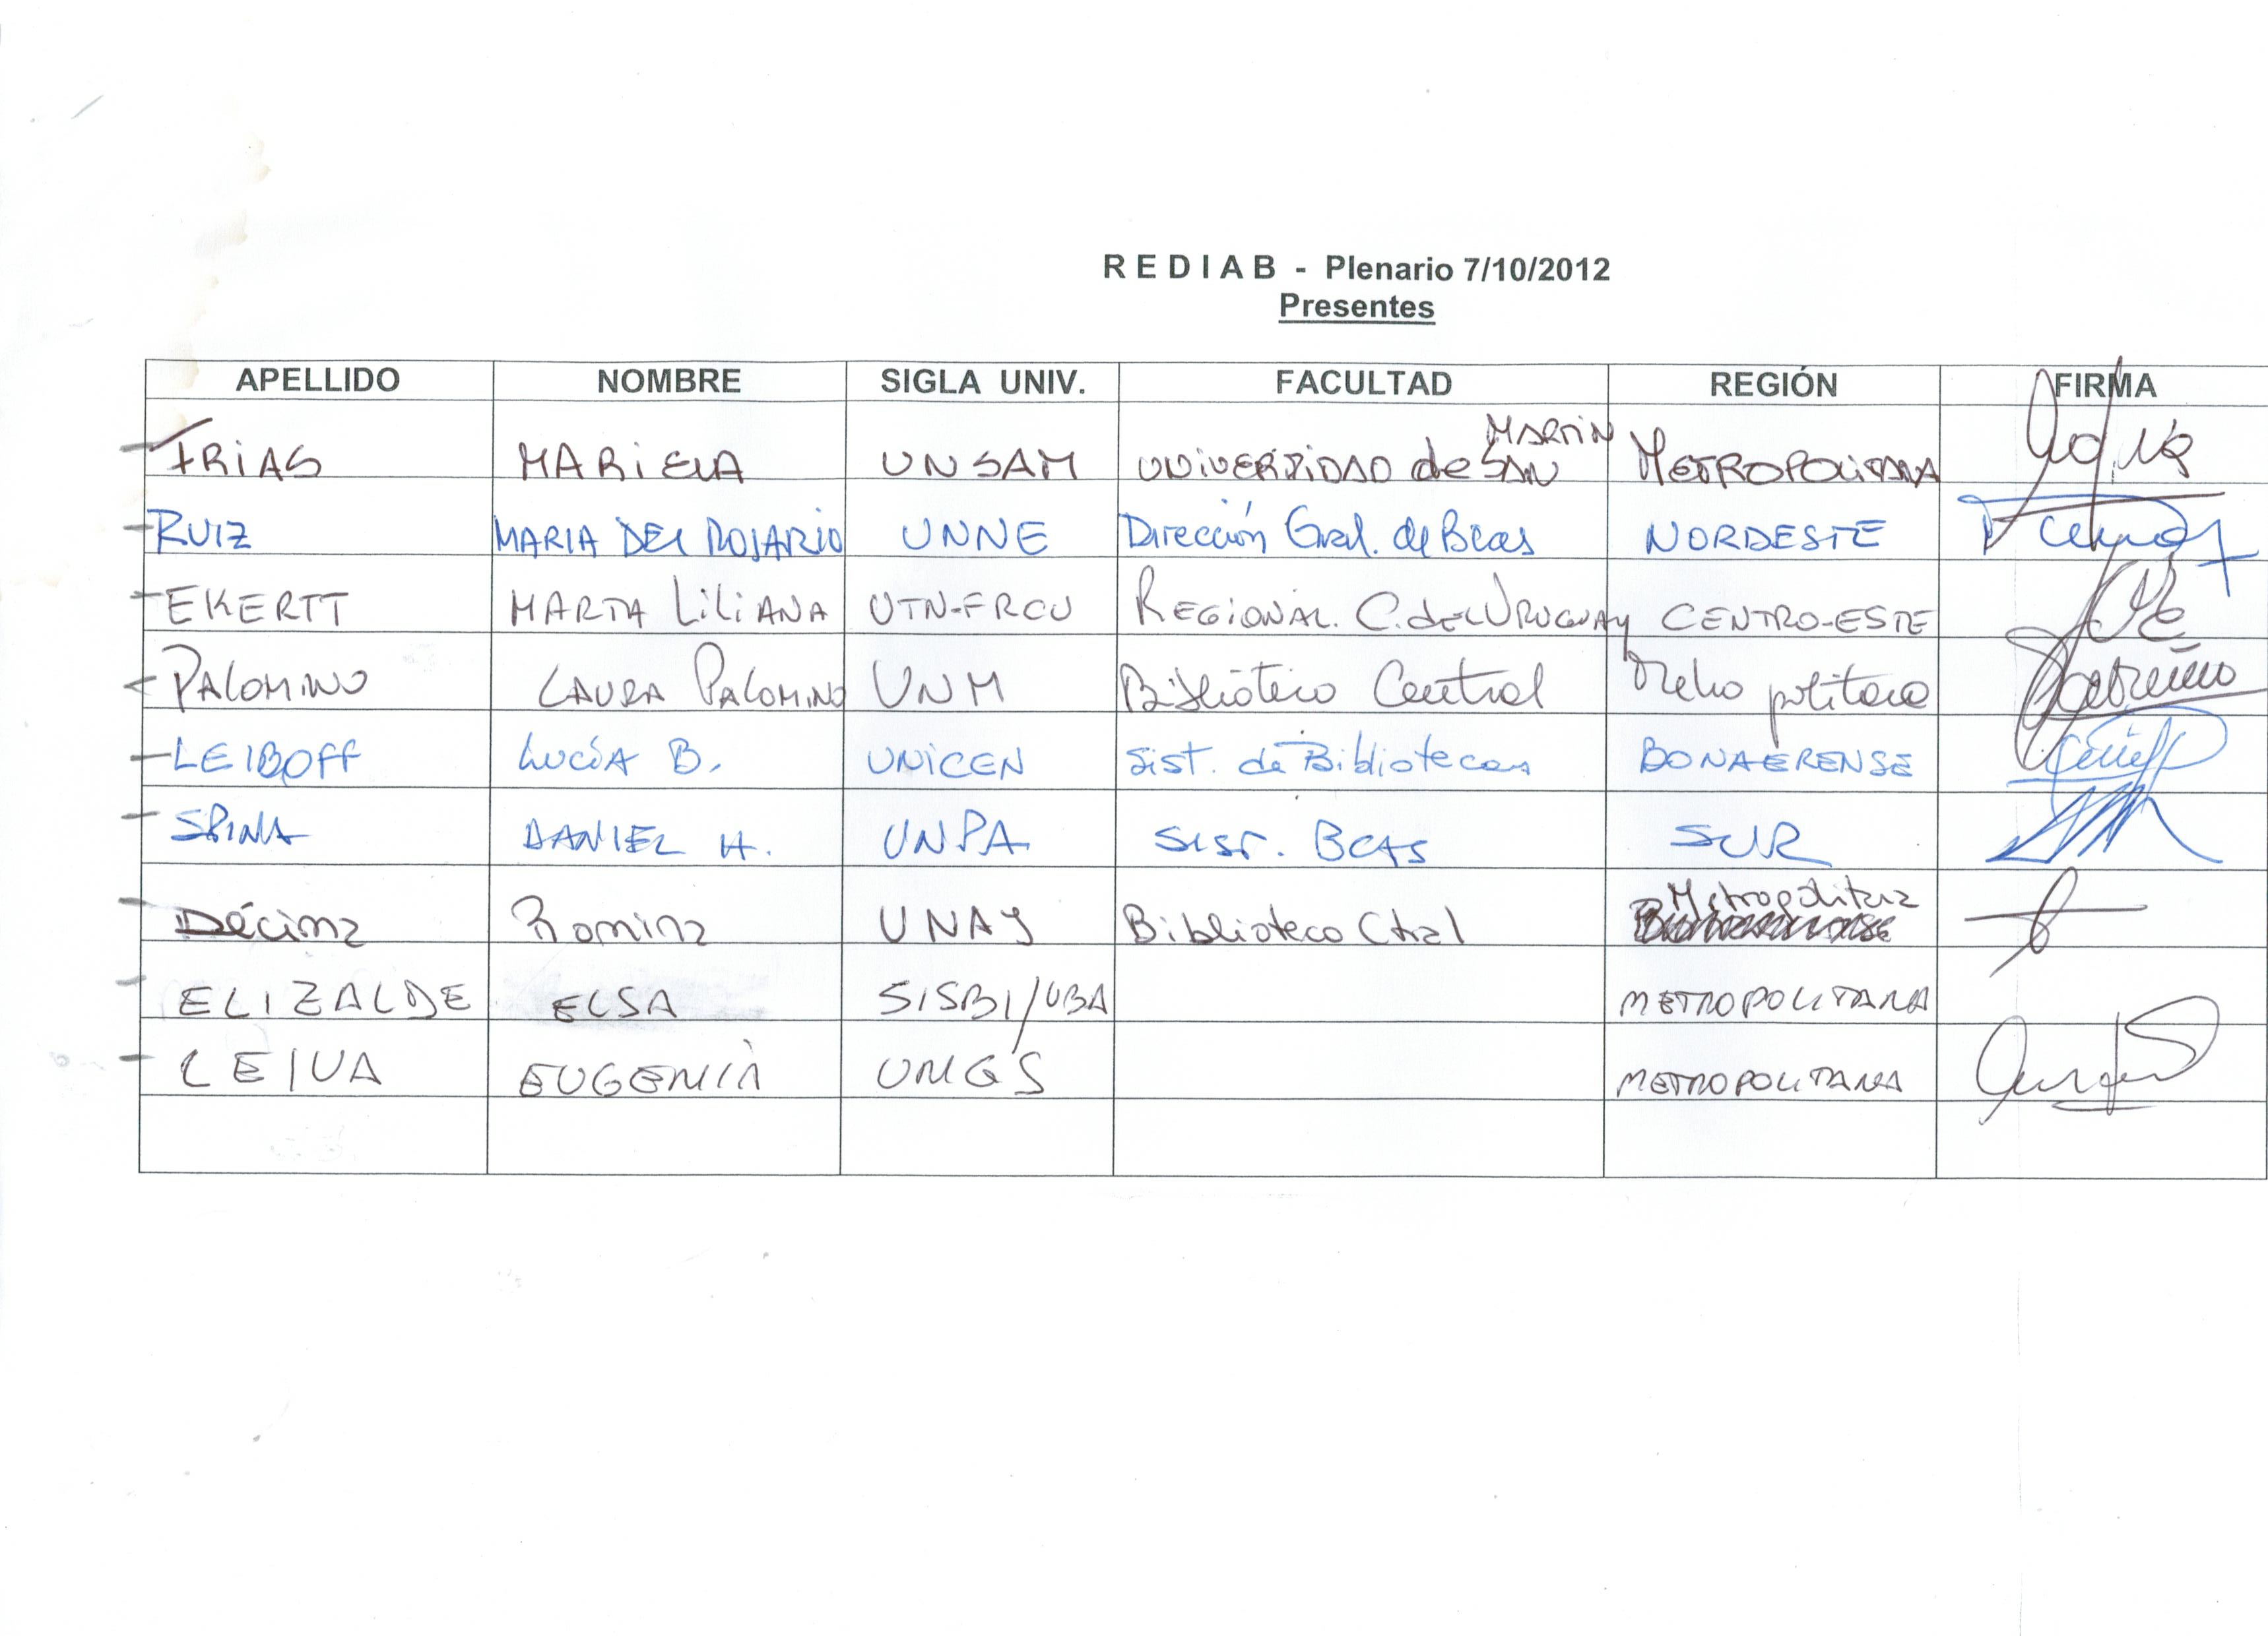 R E D I A B - Plenario 7/10/2012
Presentes
APELLIDO NOMBRE SIGLA UNIV. FACULTAD REGIÓN FIRMA
FRIAS MARIELA UNSAM UNIVERSIDAD de SAN MARTIN METROPOLITANA
RUIZ MARIA DEL ROSARIO UNNE Dirección Gral. de Bcas NORDESTE
EKERTT MARTA LILIANA UTN-FRCU REGIONAL. C. del URUGUAY CENTRO-ESTE
PALOMINO LAURA PALOMINO UNM Biblioteca Central Metropolitana
LEIBOFF Lucía B. UNICEN Sist. de Bibliotecas BONAERENSE
SPINA DANIEL H. UNPA SIST. BCAS SUR
Décima Romina UNAJ Biblioteca Ctral Metropolitana
ELIZALDE ELSA SISBI/UBA METROPOLITANA
LEIVA EUGENIA UNGS METROPOLITANA